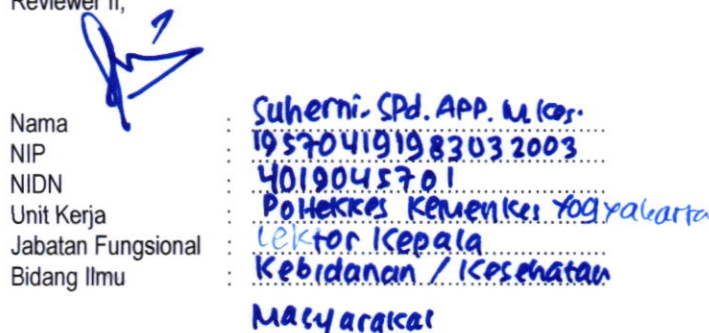 Reviewer II,
Nama : Suherni. SPd. APP. M.Kes.
NIP : 195704191983032003
NIDN : 4019045701
Unit Kerja : Poltekkes Kemenkes Yogyakarta
Jabatan Fungsional : Lektor Kepala
Bidang Ilmu : Kebidanan / Kesehatan
Masyarakat